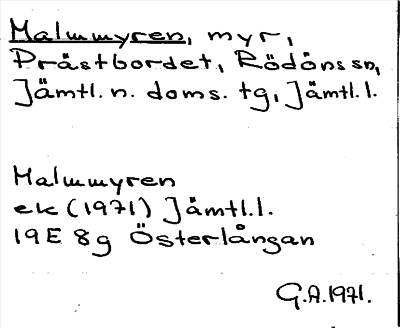 Malmmyren, myr,
Prästbordet, Rödöns sn,
Jämtl. n. doms. tg, Jämtl. l.
Malmmyren
ek (1971) Jämtl. l.
19E 8g Österlången
G.A. 1971.